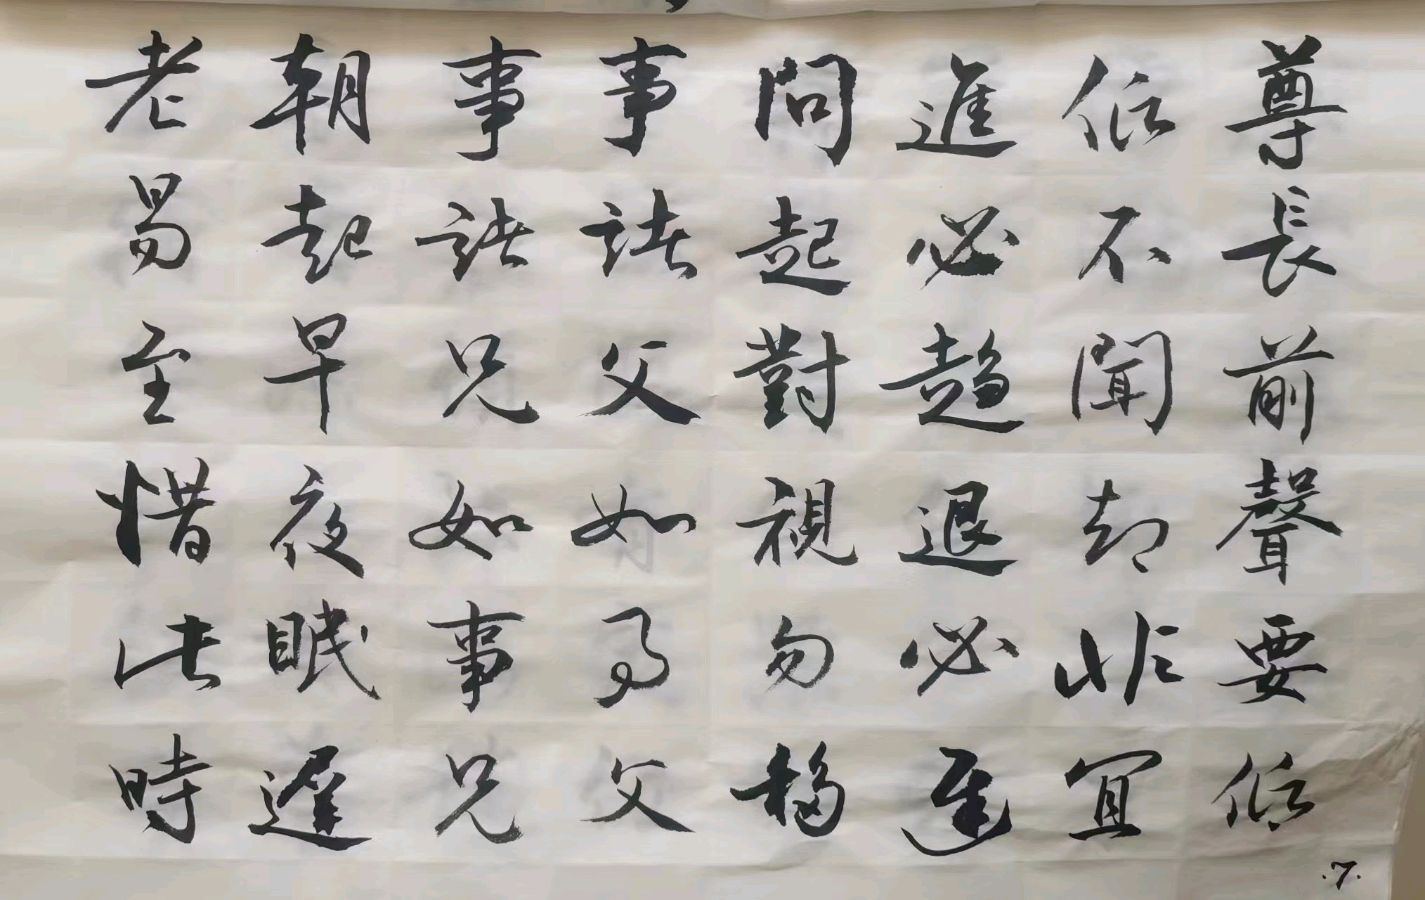 尊長前聲要低
低不聞却非宜
進必趨退必遲
問起對視勿移
事諸父如事父
事諸兄如事兄
朝起早夜眠遲
老易至惜此時
·7·